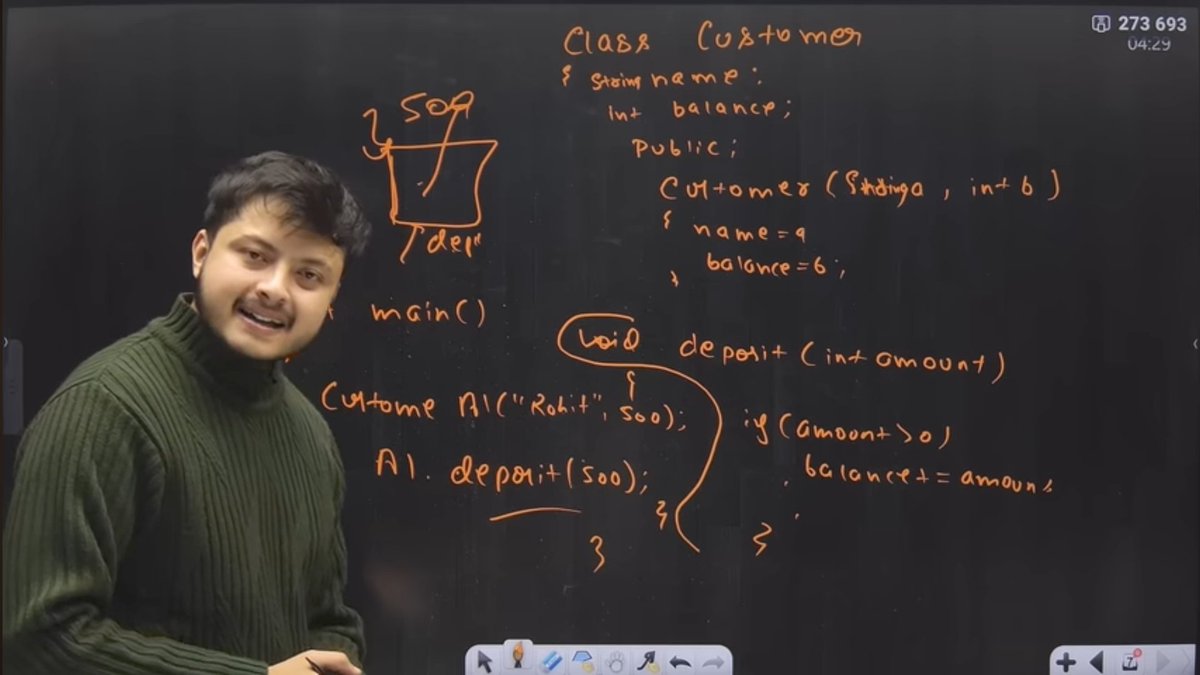 273 693
04:29
Class Customer
{ String name;
int balance;
Public;
Customer (String a, int b)
{ name = a
balance = b;
}
500
"dep"
main()
Custome A1("Rohit", 500);
A1. deposit(500);
}
}
void deposit (int amount)
{
if (amount > 0)
balance += amount;
}
7